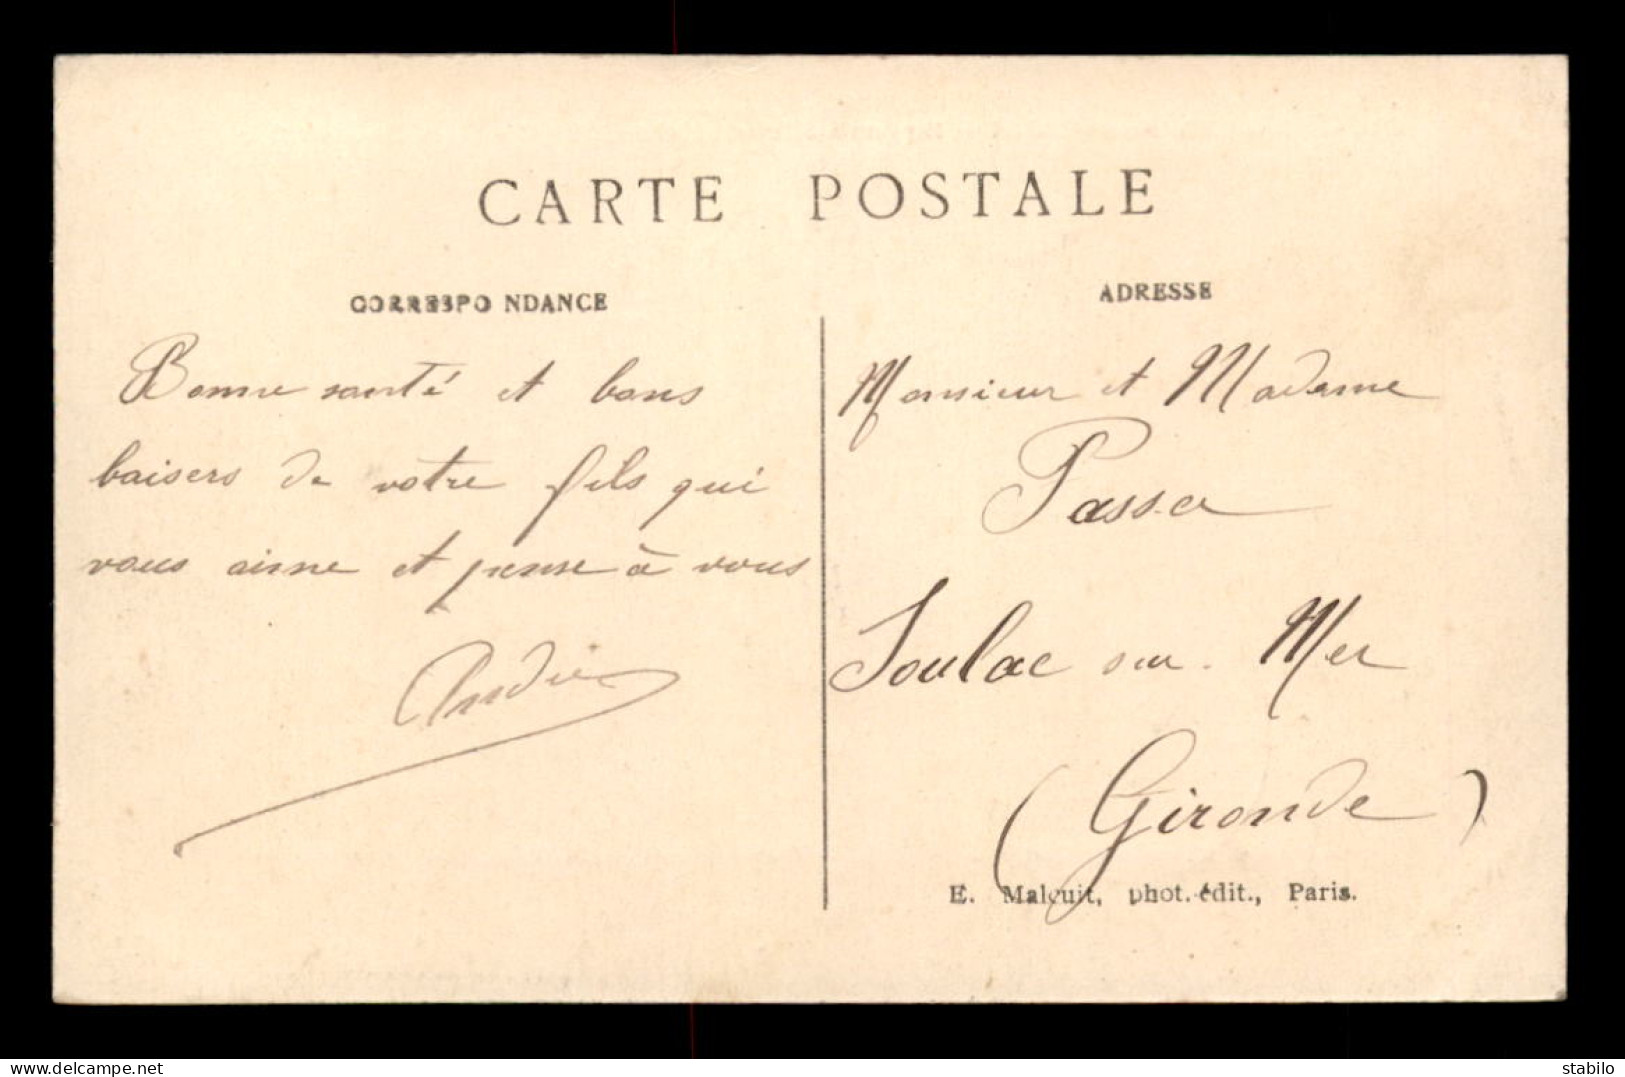 CARTE POSTALE
CORRESPONDANCE
Bonne santé et bons
baisers de votre fils qui
vous aime et pense à vous
André
ADRESSE
Monsieur et Madame
Soulac sur Mer
(Gironde)
E. Malcuit, phot. édit., Paris.
delcampe.net
stabilo